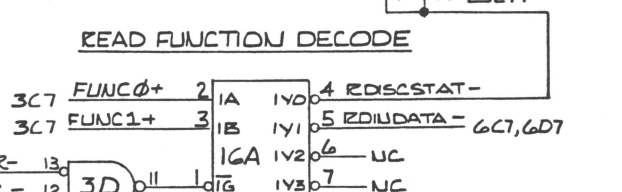 READ FUNCTION DECODE
3C7 FUNC0+ 2 1A 1Y0 4 RDISCSTAT-
3C7 FUNC1+ 3 1B 1Y1 5 RDINDATA- 6C7,6D7
16A 1Y2 6 NC
R- 13 3D 11 1 1G 1Y3 7 NC
- 12